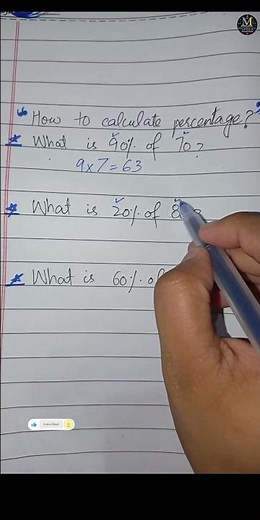 How to calculate percentage?
What is 90% of 70?
9x7=63
What is 20% of
What is 60% of